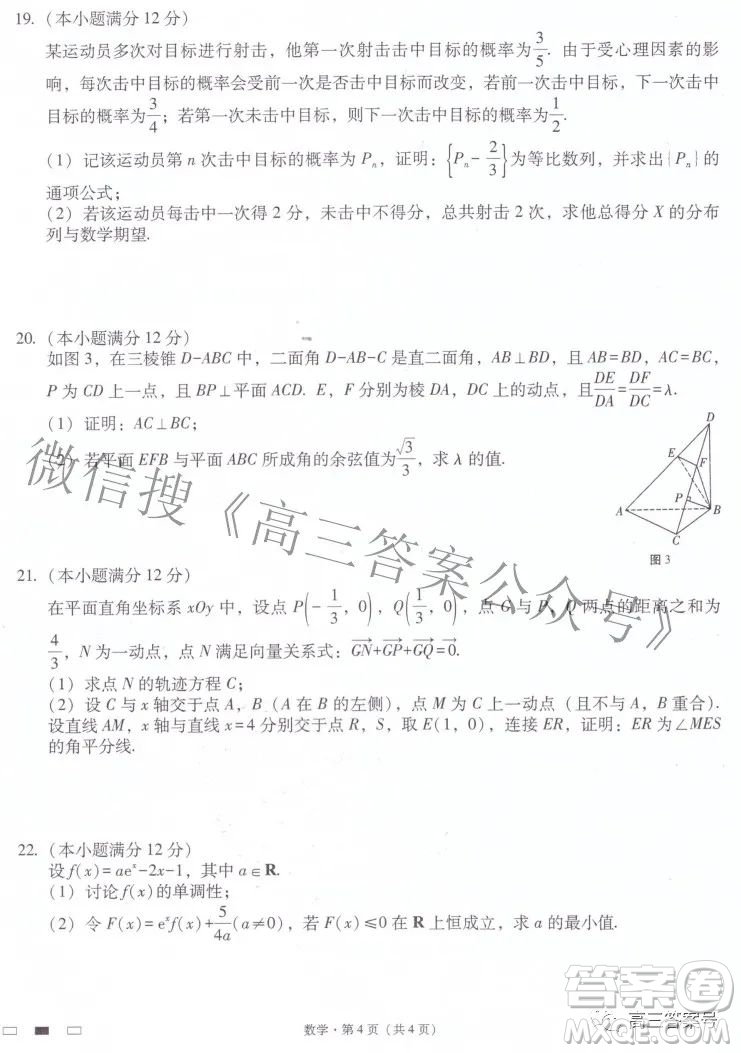 19. (本小题满分 12 分)
某运动员多次对目标进行射击，他第一次射击击中目标的概率为3/5. 由于受心理因素的影
响，每次击中目标的概率会受前一次是否击中目标而改变，若前一次击中目标，下一次击中
目标的概率为3/4；若第一次未击中目标，则下一次击中目标的概率为1/2.
(1) 记该运动员第 n 次击中目标的概率为 Pₙ，证明：{Pₙ-2/3}为等比数列，并求出{Pₙ}的
通项公式；
(2) 若该运动员每击中一次得 2 分，未击中不得分，总共射击 2 次，求他总得分 X 的分布
列与数学期望.
20. (本小题满分 12 分)
如图 3，在三棱锥 D-ABC 中，二面角 D-AB-C 是直二面角，AB⊥BD，且 AB=BD，AC=BC，
P 为 CD 上一点，且 BP⊥平面 ACD. E，F 分别为棱 DA，DC 上的动点，且DE/DA=DF/DC=λ.
(1) 证明：AC⊥BC；
(2) 若平面 EFB 与平面 ABC 所成角的余弦值为√3/3，求 λ 的值.
D
E
F
P
A
B
C
图 3
21. (本小题满分 12 分)
在平面直角坐标系 xOy 中，设点 P(-1/3，0)，Q(1/3，0)，点 G 与 P，Q 两点的距离之和为
4/3，N 为一动点，点 N 满足向量关系式：GN+GP+GQ=0.
(1) 求点 N 的轨迹方程 C；
(2) 设 C 与 x 轴交于点 A，B (A 在 B 的左侧)，点 M 为 C 上一动点 (且不与 A，B 重合).
设直线 AM，x 轴与直线 x=4 分别交于点 R，S，取 E(1，0)，连接 ER，证明：ER 为∠MES
的角平分线.
22. (本小题满分 12 分)
设 f(x)=aeˣ-2x-1，其中 a∈R.
(1) 讨论 f(x) 的单调性；
(2) 令 F(x)=eˣf(x)+5/4a(a≠0)，若 F(x)≤0 在 R 上恒成立，求 a 的最小值.
数学·第 4 页 (共 4 页)
微信搜《高三答案公众号》
高三答案号
答案圈
MXQE.COM